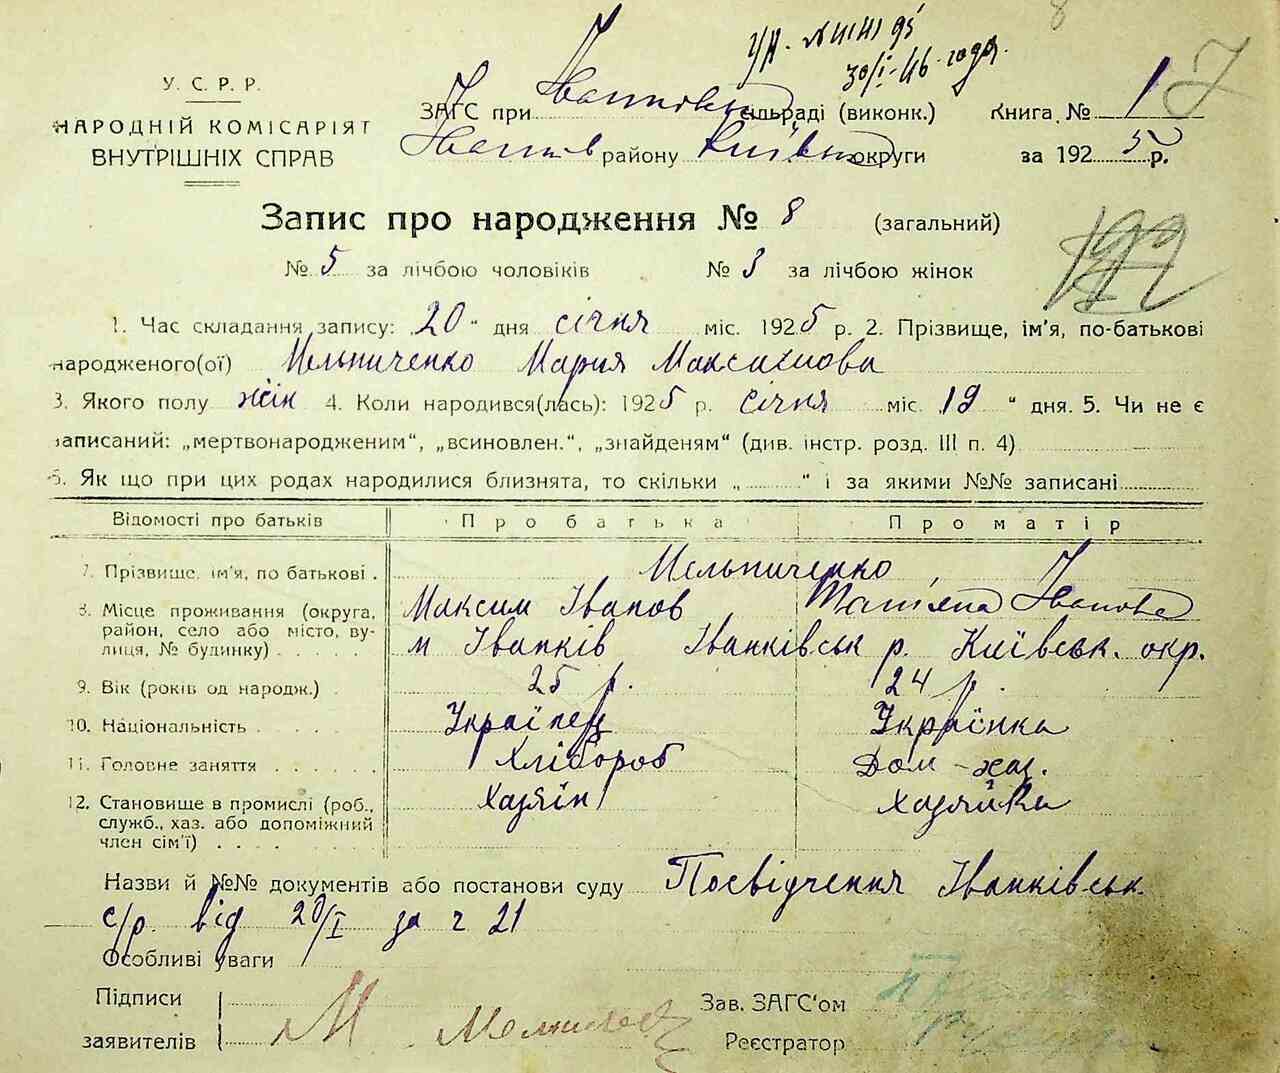 8
30/I-46 года.
У. С. Р. Р.
НАРОДНІЙ КОМІСАРІЯТ
ВНУТРІШНІХ СПРАВ
ЗАГС при Іванковськ сільраді (виконк.) Книга № 1
Іванків району Київськ округи за 1925 р.
Запис про народження № 8 (загальний)
№ 5 за лічбою чоловіків № 3 за лічбою жінок
1. Час складання запису: 20 " дня січня міс. 1925 р. 2. Прізвище, ім'я, по-батькові
народженого(ої) Мельниченко Мария Максимова
3. Якого полу жін 4. Коли народився(лась): 1925 р. січня міс. 19 " дня. 5. Чи не є
записаний: „мертвонародженим“, „всиновлен.“, „знайденям“ (див. інстр. розд. III п. 4)
6. Як що при цих родах народилися близнята, то скільки „ “ і за якими №№ записані
Відомості про батьків Про батька Про матір
7. Прізвище, ім'я, по батькові . Мельниченко
Максим Іванов Татіяна Іванова
8. Місце проживання (округа, район, село або місто, ву-
лиця, № будинку) м Іванків Іванківськ р. Київськ. окр.
9. Вік (років од народж.) 25 р. 24 р.
10. Національність Українец Українка
11. Головне заняття Хлібороб Дом-хаз.
12. Становище в промислі (роб., Хазяїн Хазяйка
служб., хаз. або допоміжний
член сім'ї)
Назви й №№ документів або постанови суду Посвідчення Іванківськ.
с/р. від 20/I за ч 21
Особливі уваги
Підписи Зав. ЗАГС'ом
заявителів М Реєстратор